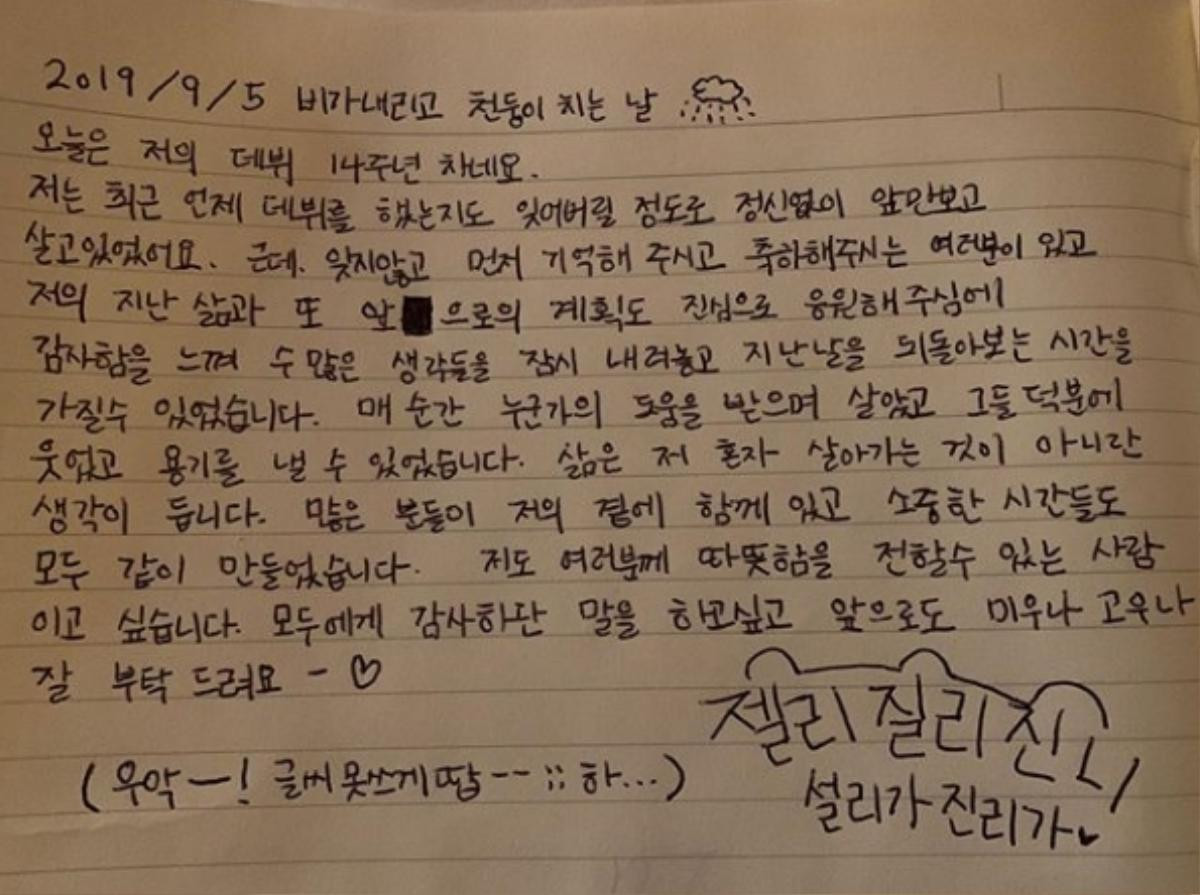 2019/9/5 비가내리고 천둥이 치는 날
오늘은 저의 데뷔 14주년 차네요.
저는 최근 언제 데뷔를 했는지도 잊어버릴 정도로 정신없이 앞만보고
살고있었어요. 근데. 잊지않고 먼저 기억해 주시고 축하해주시는 여러분이 있고
저의 지난 삶과 또 앞으로의 계획도 진심으로 응원해주심에
감사함을 느껴 수많은 생각들을 잠시 내려놓고 지난날을 되돌아보는 시간을
가질수 있었습니다. 매 순간 누군가의 도움을 받으며 살았고 그들 덕분에
웃었고 용기를 낼 수 있었습니다. 삶은 저 혼자 살아가는 것이 아니란
생각이 듭니다. 많은 분들이 저의 곁에 함께 있고 소중한 시간들도
모두 같이 만들었습니다. 저도 여러분께 따뜻함을 전할수 있는 사람
이고 싶습니다. 모두에게 감사하단 말을 하고싶고 앞으로도 미우나 고우나
잘 부탁 드려요 - ♡
젤리 질리
설리가 진리가
(우악ㅡ! 글씨 못쓰게땁--;; 하...)